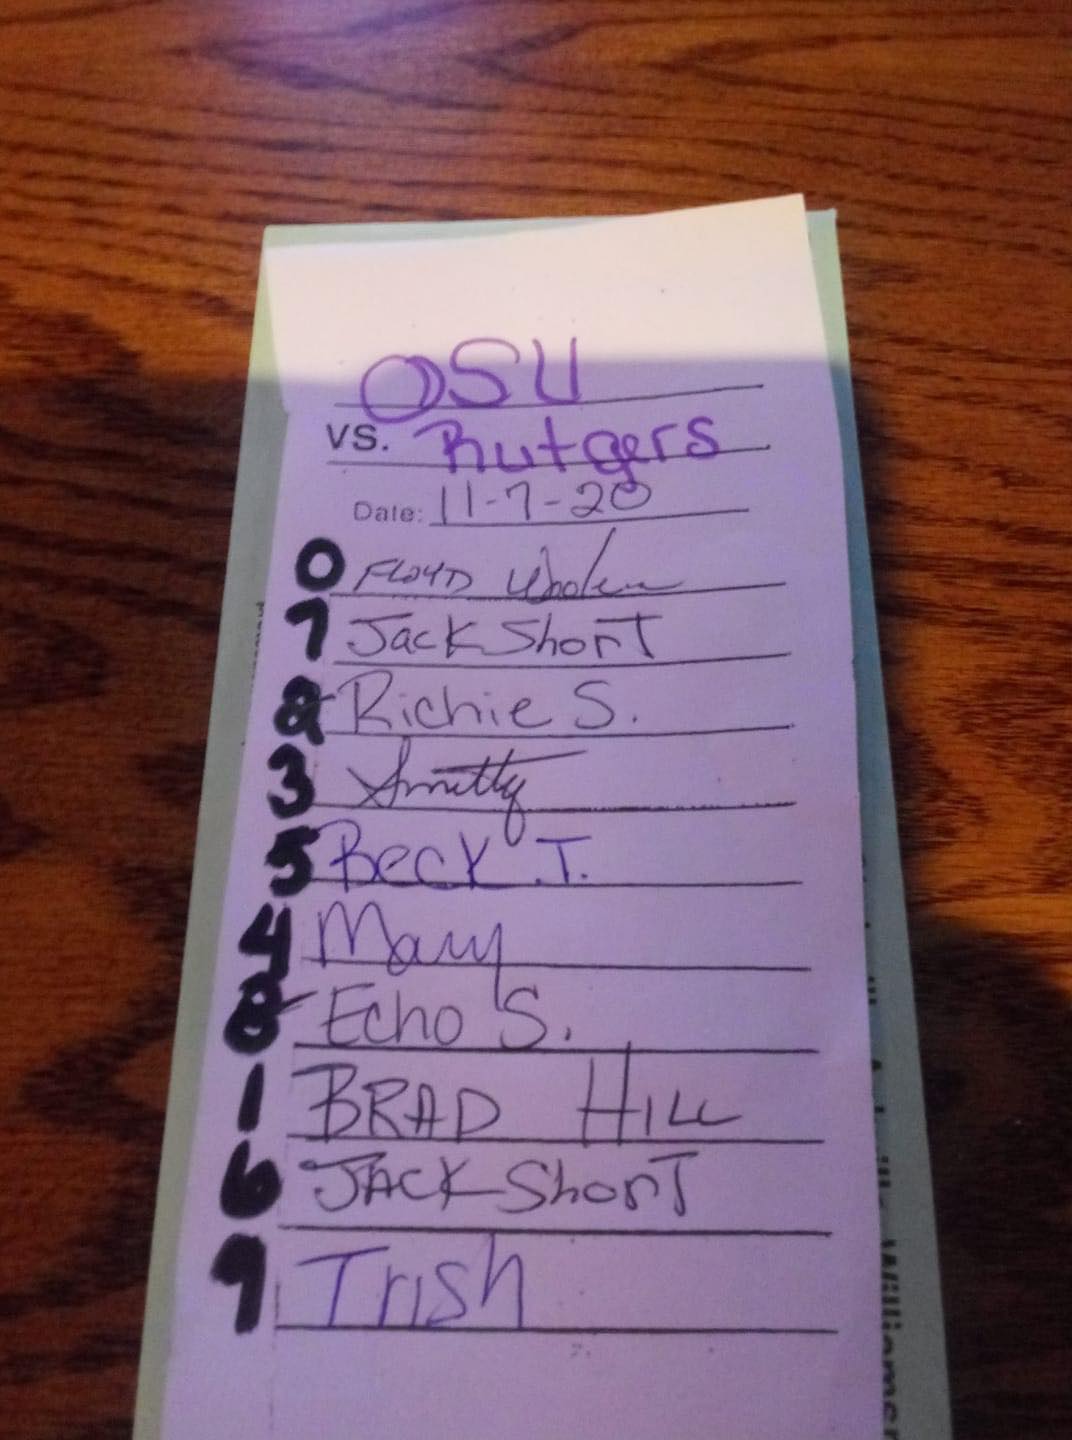 OSU
VS. Rutgers
Date: 11-7-20
0 FLOYD
7 Jack Short
2 Richie S.
3 Smitty
5 Beck T.
4 Mary
8 Echo S.
1 BRAD HILL
6 JACK Short
9 Trish